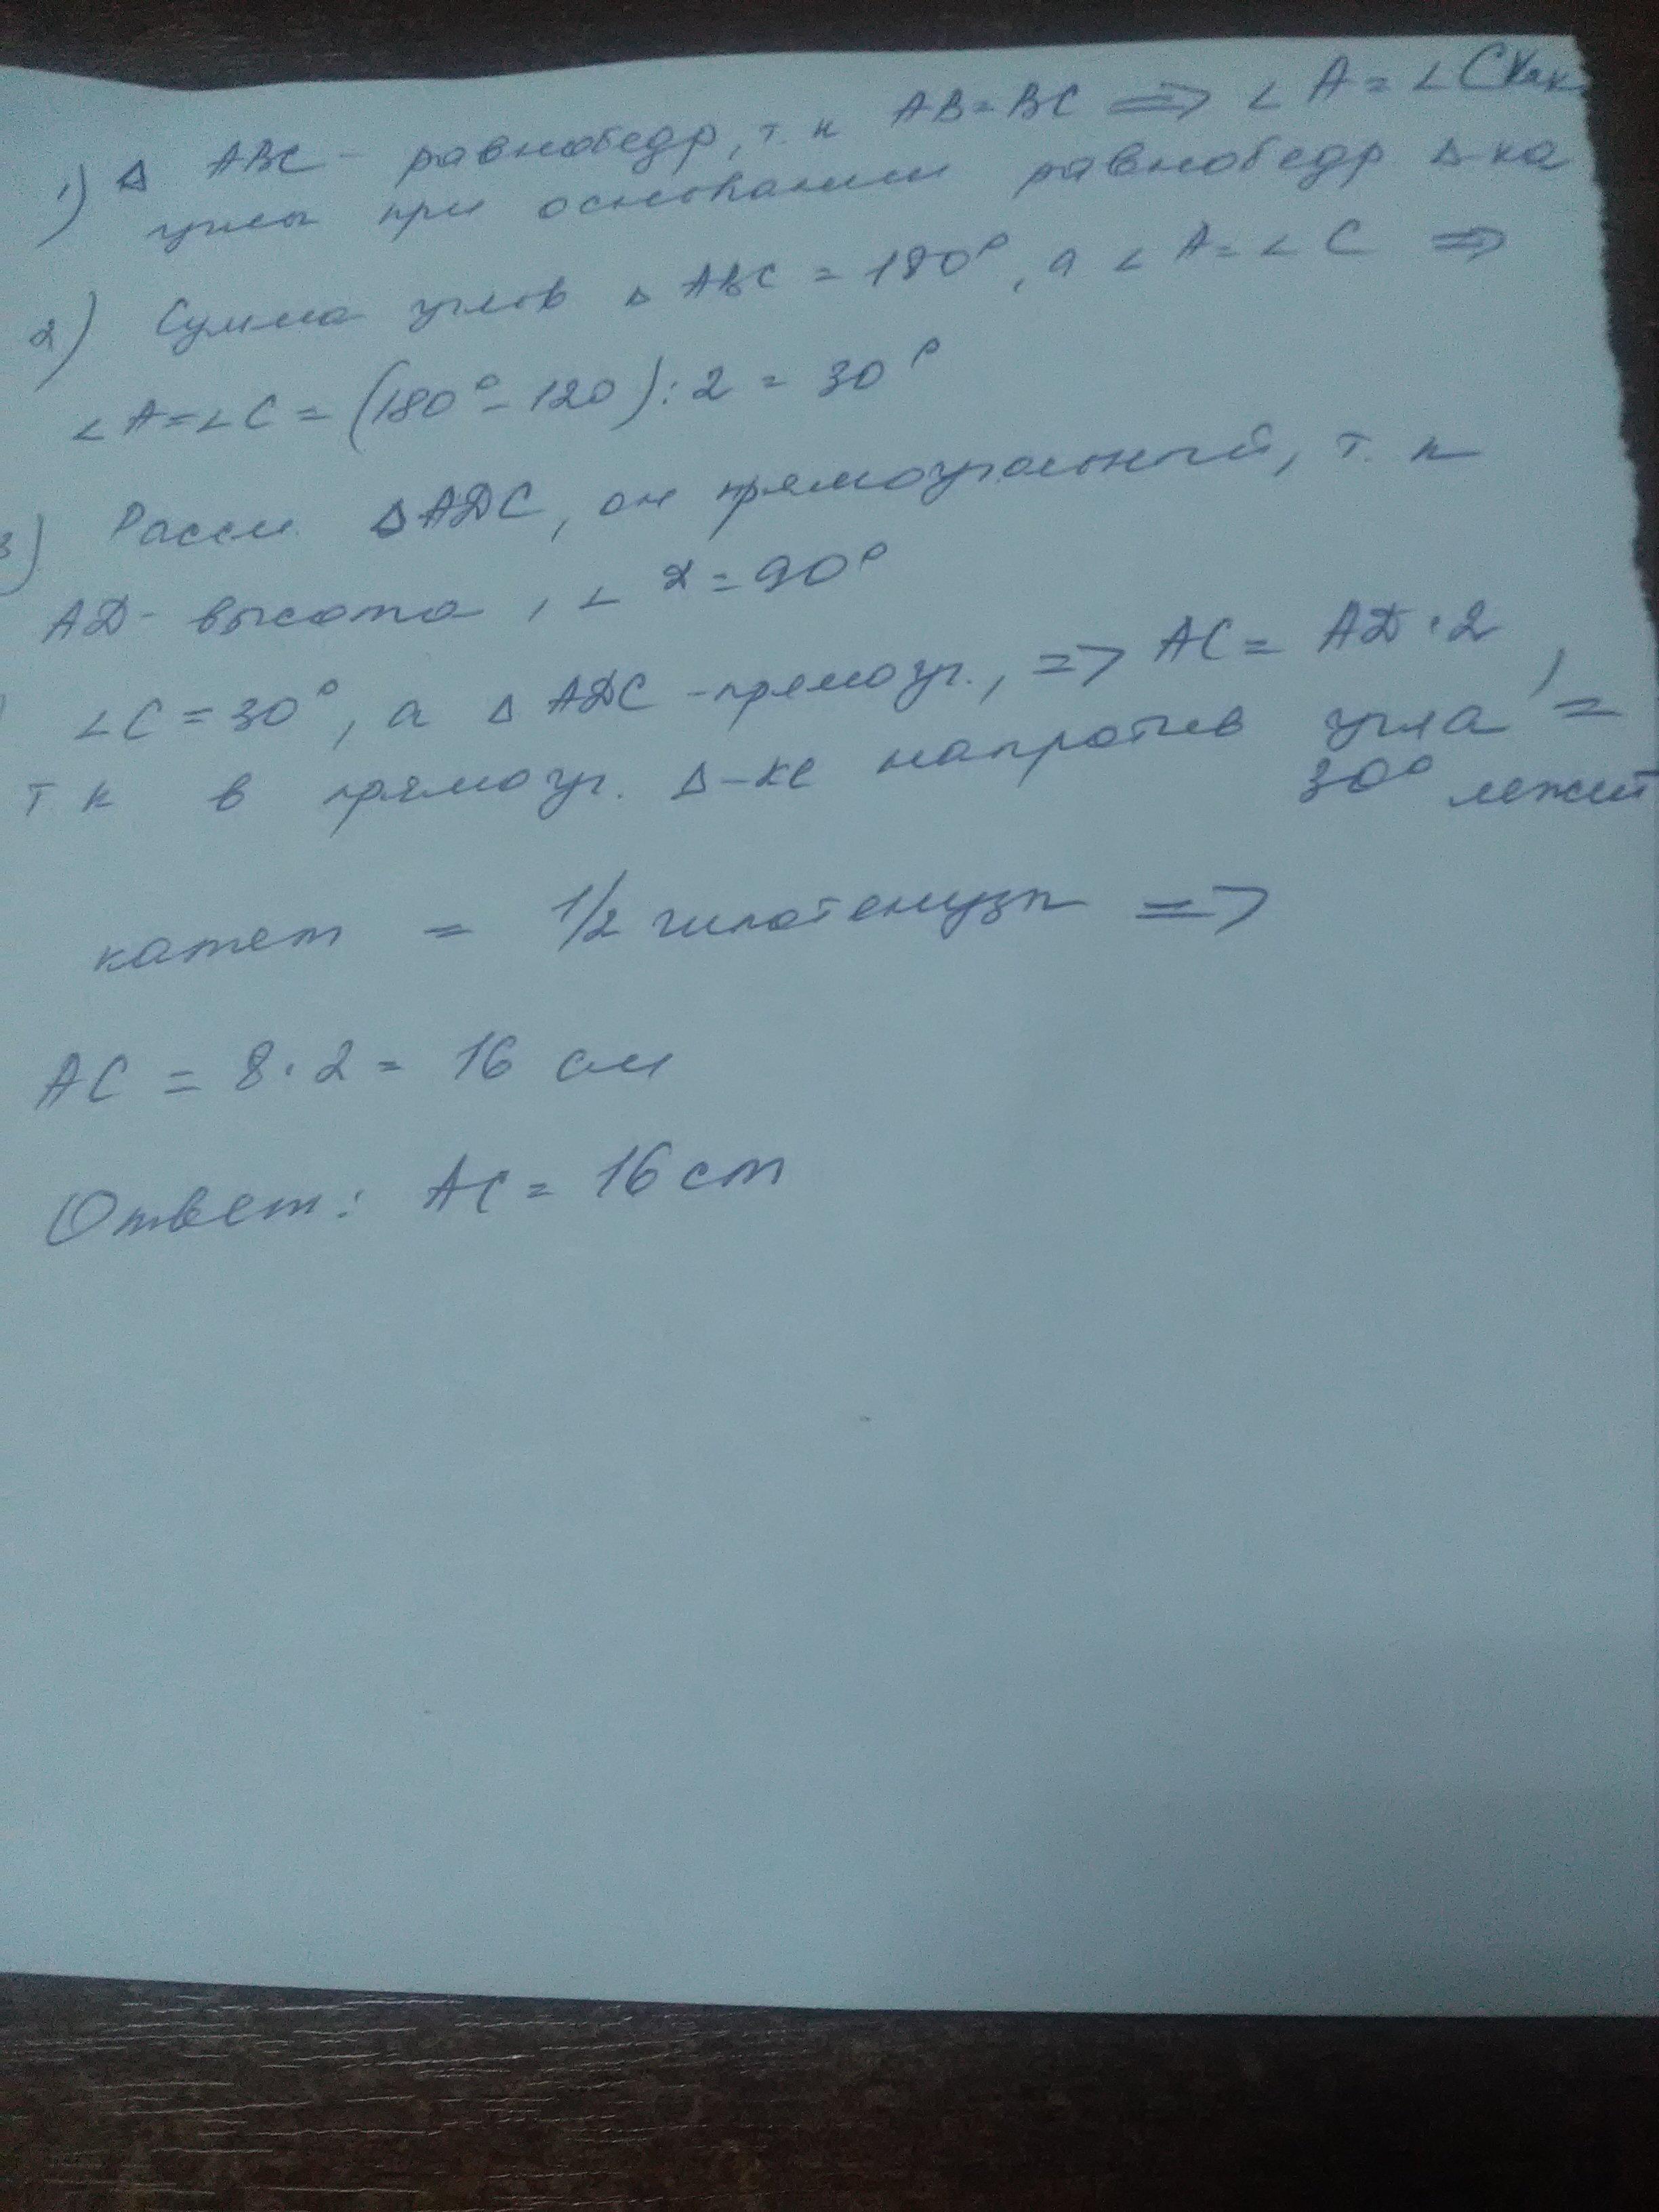 1) △ ABC - равнобедр, т. к AB = BC => ∠ A = ∠ C как
углы при основании равнобедр △-ка
2) Сумма углов △ ABC = 180°, а ∠ A = ∠ C =>
∠ A = ∠ C = (180° - 120) : 2 = 30°
3) Рассм. △ ADC, он прямоугольный, т. к
AD - высота, ∠ 2 = 90°
∠ C = 30°, а △ ADC - прямоуг., => AC = AD · 2,
т к в прямоуг. △-ке напротив угла =
30° лежит
катет = 1/2 гипотенузы =>
AC = 8 · 2 = 16 см
Ответ: AC = 16 cm